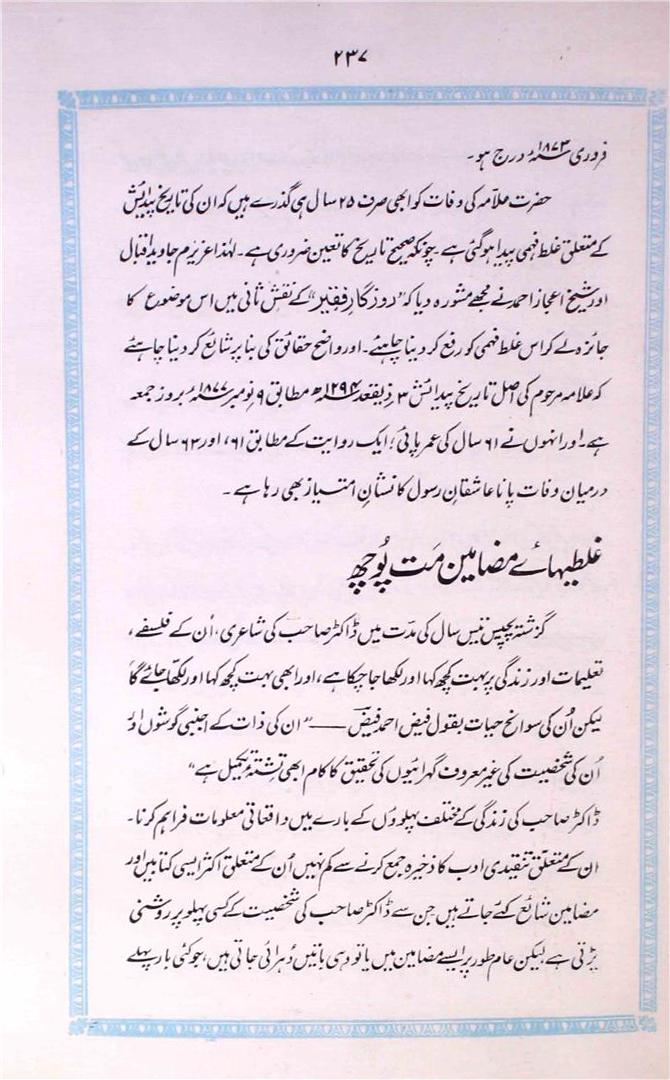 ۲۳۷
فروری ۱۸۷۳ء درج ہو۔
حضرت علامہ کی وفات کو ابھی صرف ۲۵ سال ہی گذرے ہیں کہ ان کی تاریخ پیدائش
کے متعلق غلط فہمی پیدا ہو گئی ہے۔ چونکہ صحیح تاریخ کا تعین ضروری ہے۔ لہٰذا عزیزم جاوید اقبال
اور شیخ اعجاز احمد نے مجھے مشورہ دیا کہ "روزگارِ فقیر" کے نقش ثانی میں اس موضوع کا
جائزہ لے کر اس غلط فہمی کو رفع کر دینا چاہئیے۔ اور واضح حقائق کی بنا پر شائع کر دینا چاہئے
کہ علامہ مرحوم کی اصل تاریخ پیدائش ۳ ذیقعد ۱۲۹۴ھ مطابق ۹ نومبر ۱۸۷۷ء بروز جمعہ
ہے۔ اور انہوں نے ۶۱ سال کی عمر پائی؛ ایک روایت کے مطابق ۶۱، اور ۶۳ سال کے
درمیان وفات پانا عاشقانِ رسول کا نشانِ امتیاز بھی رہا ہے۔
غلطیہائے مضامین مَت پُوچھ
گزشتہ پچیس تیس سال کی مدّت میں ڈاکٹر صاحب کی شاعری، اُن کے فلسفے،
تعلیمات اور زندگی پر بہت کچھ کہا اور لکھا جا چکا ہے، اور ابھی بہت کچھ کہا اور لکھا جائے گا
لیکن اُن کی سوانح حیات بقول فیض احمد فیض ـــــ "ان کی ذات کے اجنبی گوشوں اور
اُن کی شخصیت کی غیر معروف گہرائیوں کی تحقیق کا کام ابھی تشنۂ تکمیل ہے"
ڈاکٹر صاحب کی زندگی کے مختلف پہلوؤں کے بارے میں واقعاتی معلومات فراہم کرنا۔
ان کے متعلق تنقیدی ادب کا ذخیرہ جمع کرنے سے کم نہیں اُن کے متعلق اکثر ایسی کتابیں اور
مضامین شائع کئے جاتے ہیں جن سے ڈاکٹر صاحب کی شخصیت کے کسی پہلو پر روشنی
پڑتی ہے لیکن عام طور پر ایسے مضامین میں یا تو وہی باتیں دُہرائی جاتی ہیں، جو کئی بار پہلے